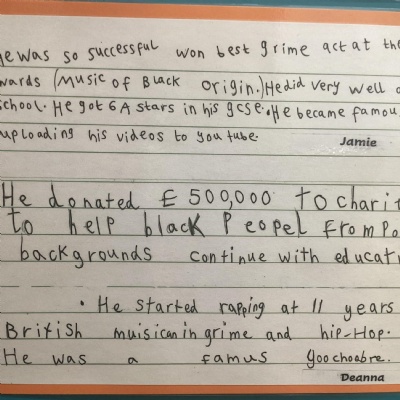 He was so successful won best grime act at the
wards (Music of Black origin.) He did very well a
school. He got 6 A stars in his gcse. He became famou
uploading his videos to you tube.
Jamie
He donated £500,000 to charit
to help black Peopel From Po
backgrounds continue with educati
• He started rapping at 11 years
British muisican in grime and hip-Hop.
He was a famus yoochoobre.
Deanna